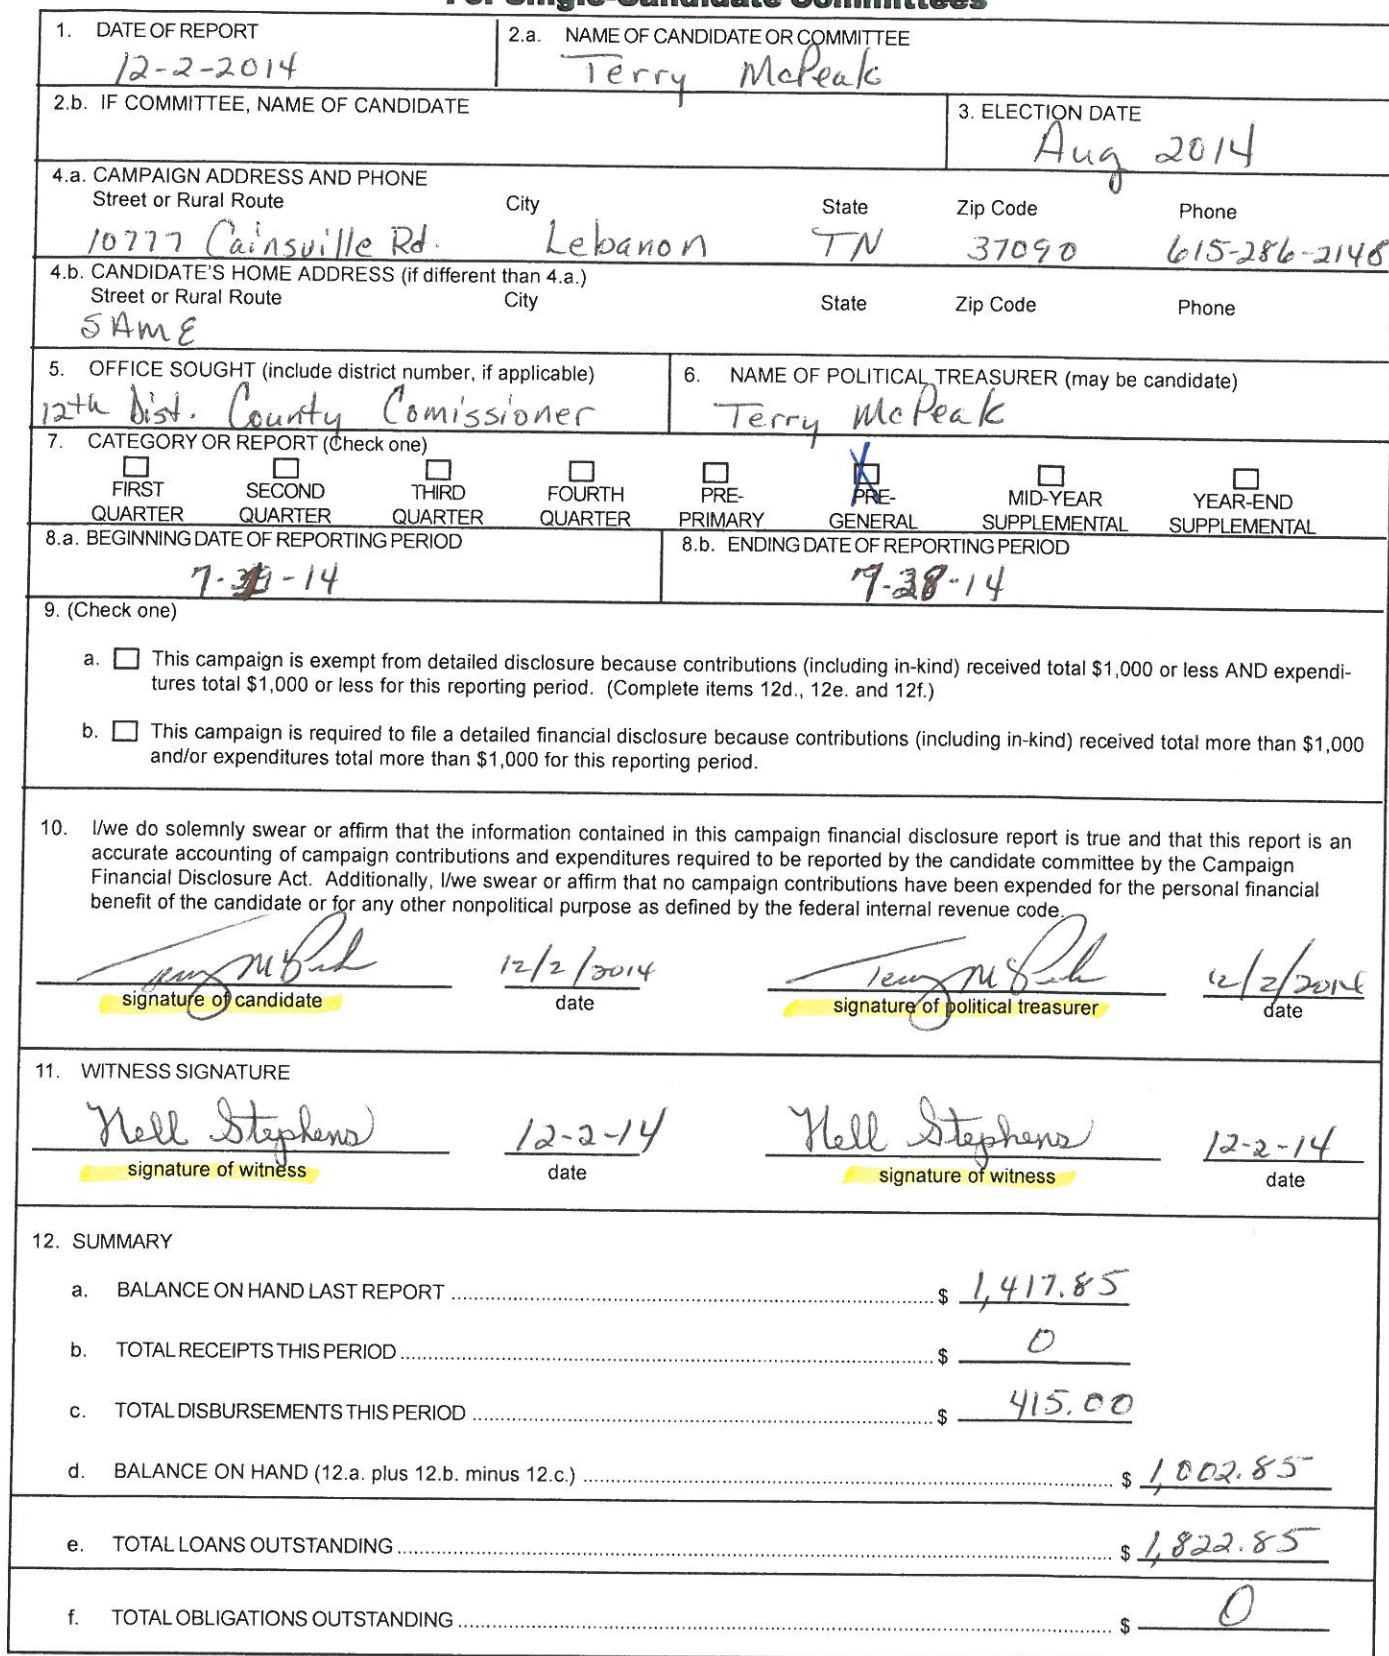 For Single-Candidate Committees
1. DATE OF REPORT
12-2-2014
2.a. NAME OF CANDIDATE OR COMMITTEE
Terry McPeak
2.b. IF COMMITTEE, NAME OF CANDIDATE
3. ELECTION DATE
Aug 2014
4.a. CAMPAIGN ADDRESS AND PHONE
Street or Rural Route City State Zip Code Phone
10777 Cainsville Rd. Lebanon TN 37090 615-286-2148
4.b. CANDIDATE'S HOME ADDRESS (if different than 4.a.)
Street or Rural Route City State Zip Code Phone
SAME
5. OFFICE SOUGHT (include district number, if applicable)
12th Dist. County Comissioner
6. NAME OF POLITICAL TREASURER (may be candidate)
Terry McPeak
7. CATEGORY OR REPORT (Check one)
FIRST QUARTER
SECOND QUARTER
THIRD QUARTER
FOURTH QUARTER
PRE-PRIMARY
X PRE-GENERAL
MID-YEAR SUPPLEMENTAL
YEAR-END SUPPLEMENTAL
8.a. BEGINNING DATE OF REPORTING PERIOD
8.b. ENDING DATE OF REPORTING PERIOD
9. (Check one)
a. This campaign is exempt from detailed disclosure because contributions (including in-kind) received total $1,000 or less AND expendi-
tures total $1,000 or less for this reporting period. (Complete items 12d., 12e. and 12f.)
b. This campaign is required to file a detailed financial disclosure because contributions (including in-kind) received total more than $1,000
and/or expenditures total more than $1,000 for this reporting period.
10. I/we do solemnly swear or affirm that the information contained in this campaign financial disclosure report is true and that this report is an
accurate accounting of campaign contributions and expenditures required to be reported by the candidate committee by the Campaign
Financial Disclosure Act. Additionally, I/we swear or affirm that no campaign contributions have been expended for the personal financial
benefit of the candidate or for any other nonpolitical purpose as defined by the federal internal revenue code.
Terry McPeak 12/2/2014 Terry McPeak 12/2/2014
signature of candidate date signature of political treasurer date
11. WITNESS SIGNATURE
Nell Stephens 12-2-14 Nell Stephens 12-2-14
signature of witness date signature of witness date
12. SUMMARY
a. BALANCE ON HAND LAST REPORT $ 1,417.85
b. TOTAL RECEIPTS THIS PERIOD $ 0
c. TOTAL DISBURSEMENTS THIS PERIOD $ 415.00
d. BALANCE ON HAND (12.a. plus 12.b. minus 12.c.) $ 1,002.85
e. TOTAL LOANS OUTSTANDING $ 1,822.85
f. TOTAL OBLIGATIONS OUTSTANDING $ 0